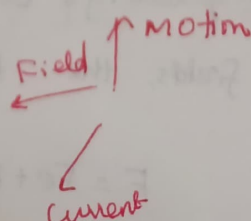 Motion
Field
Current